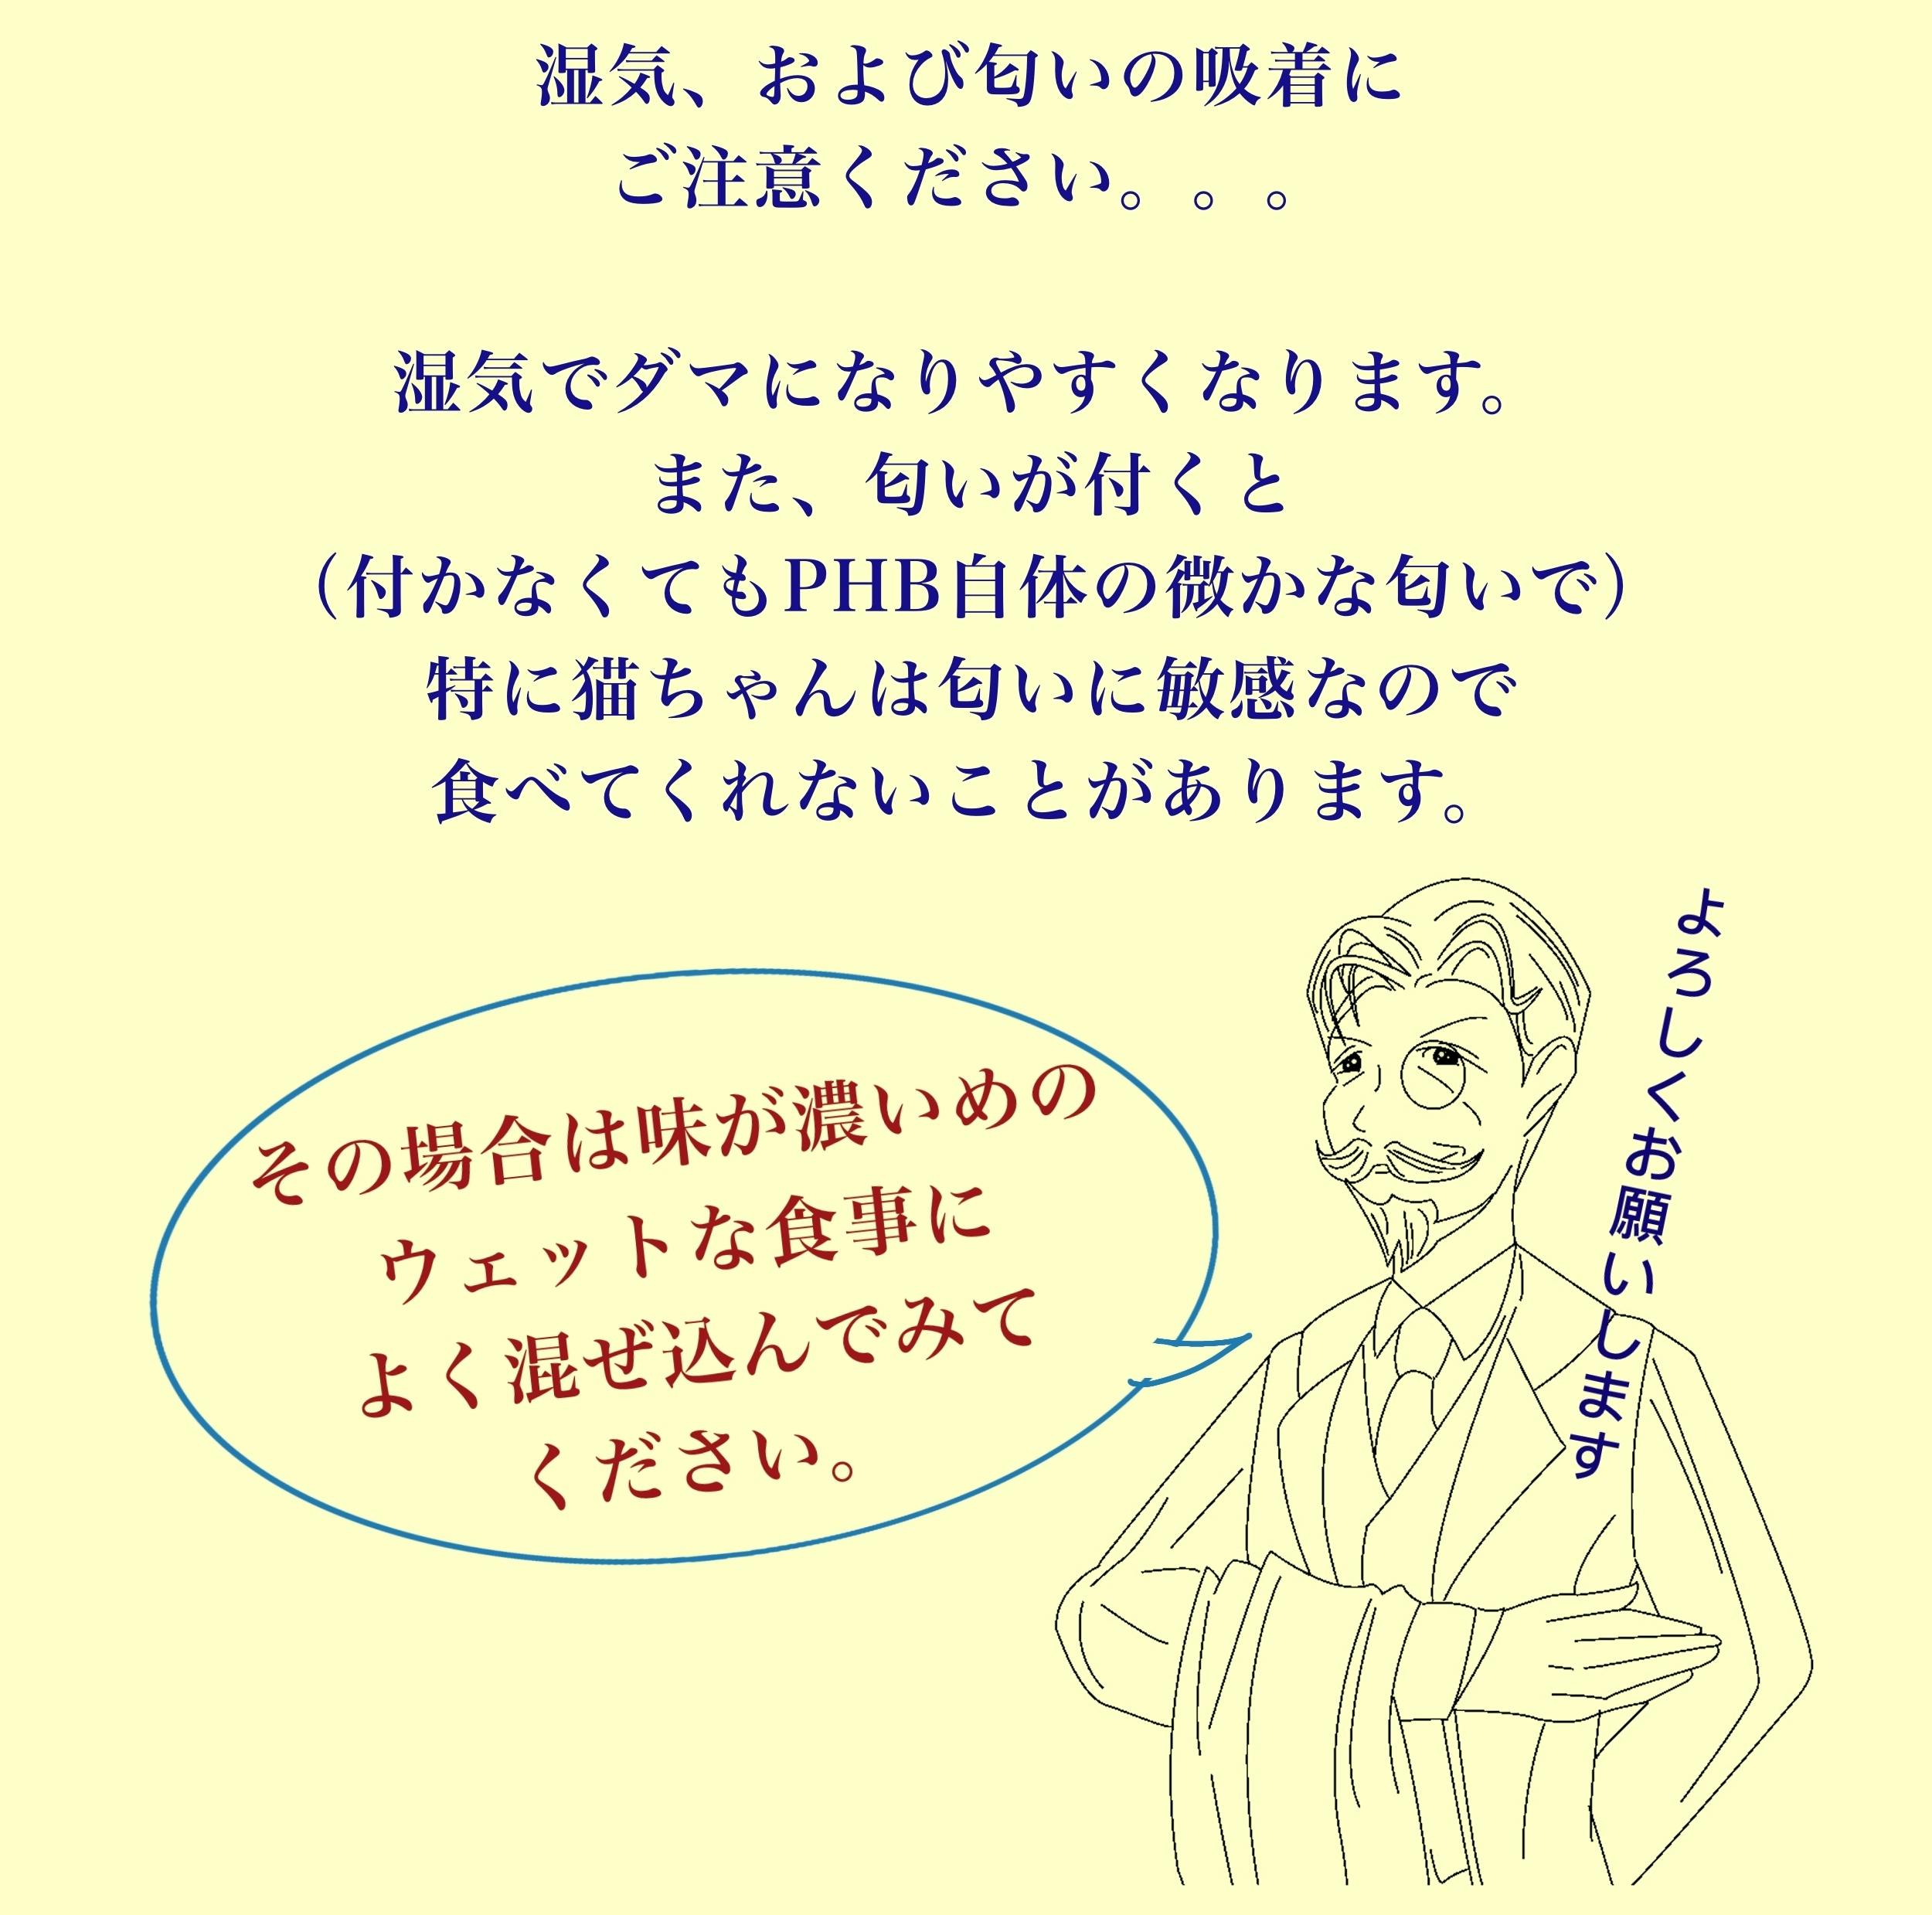 湿気、および匂いの吸着に
ご注意ください。。。
湿気でダマになりやすくなります。
また、匂いが付くと
（付かなくてもPHB自体の微かな匂いで）
特に猫ちゃんは匂いに敏感なので
食べてくれないことがあります。
その場合は味が濃いめの
ウェットな食事に
よく混ぜ込んでみて
ください。
よろしくお願いします